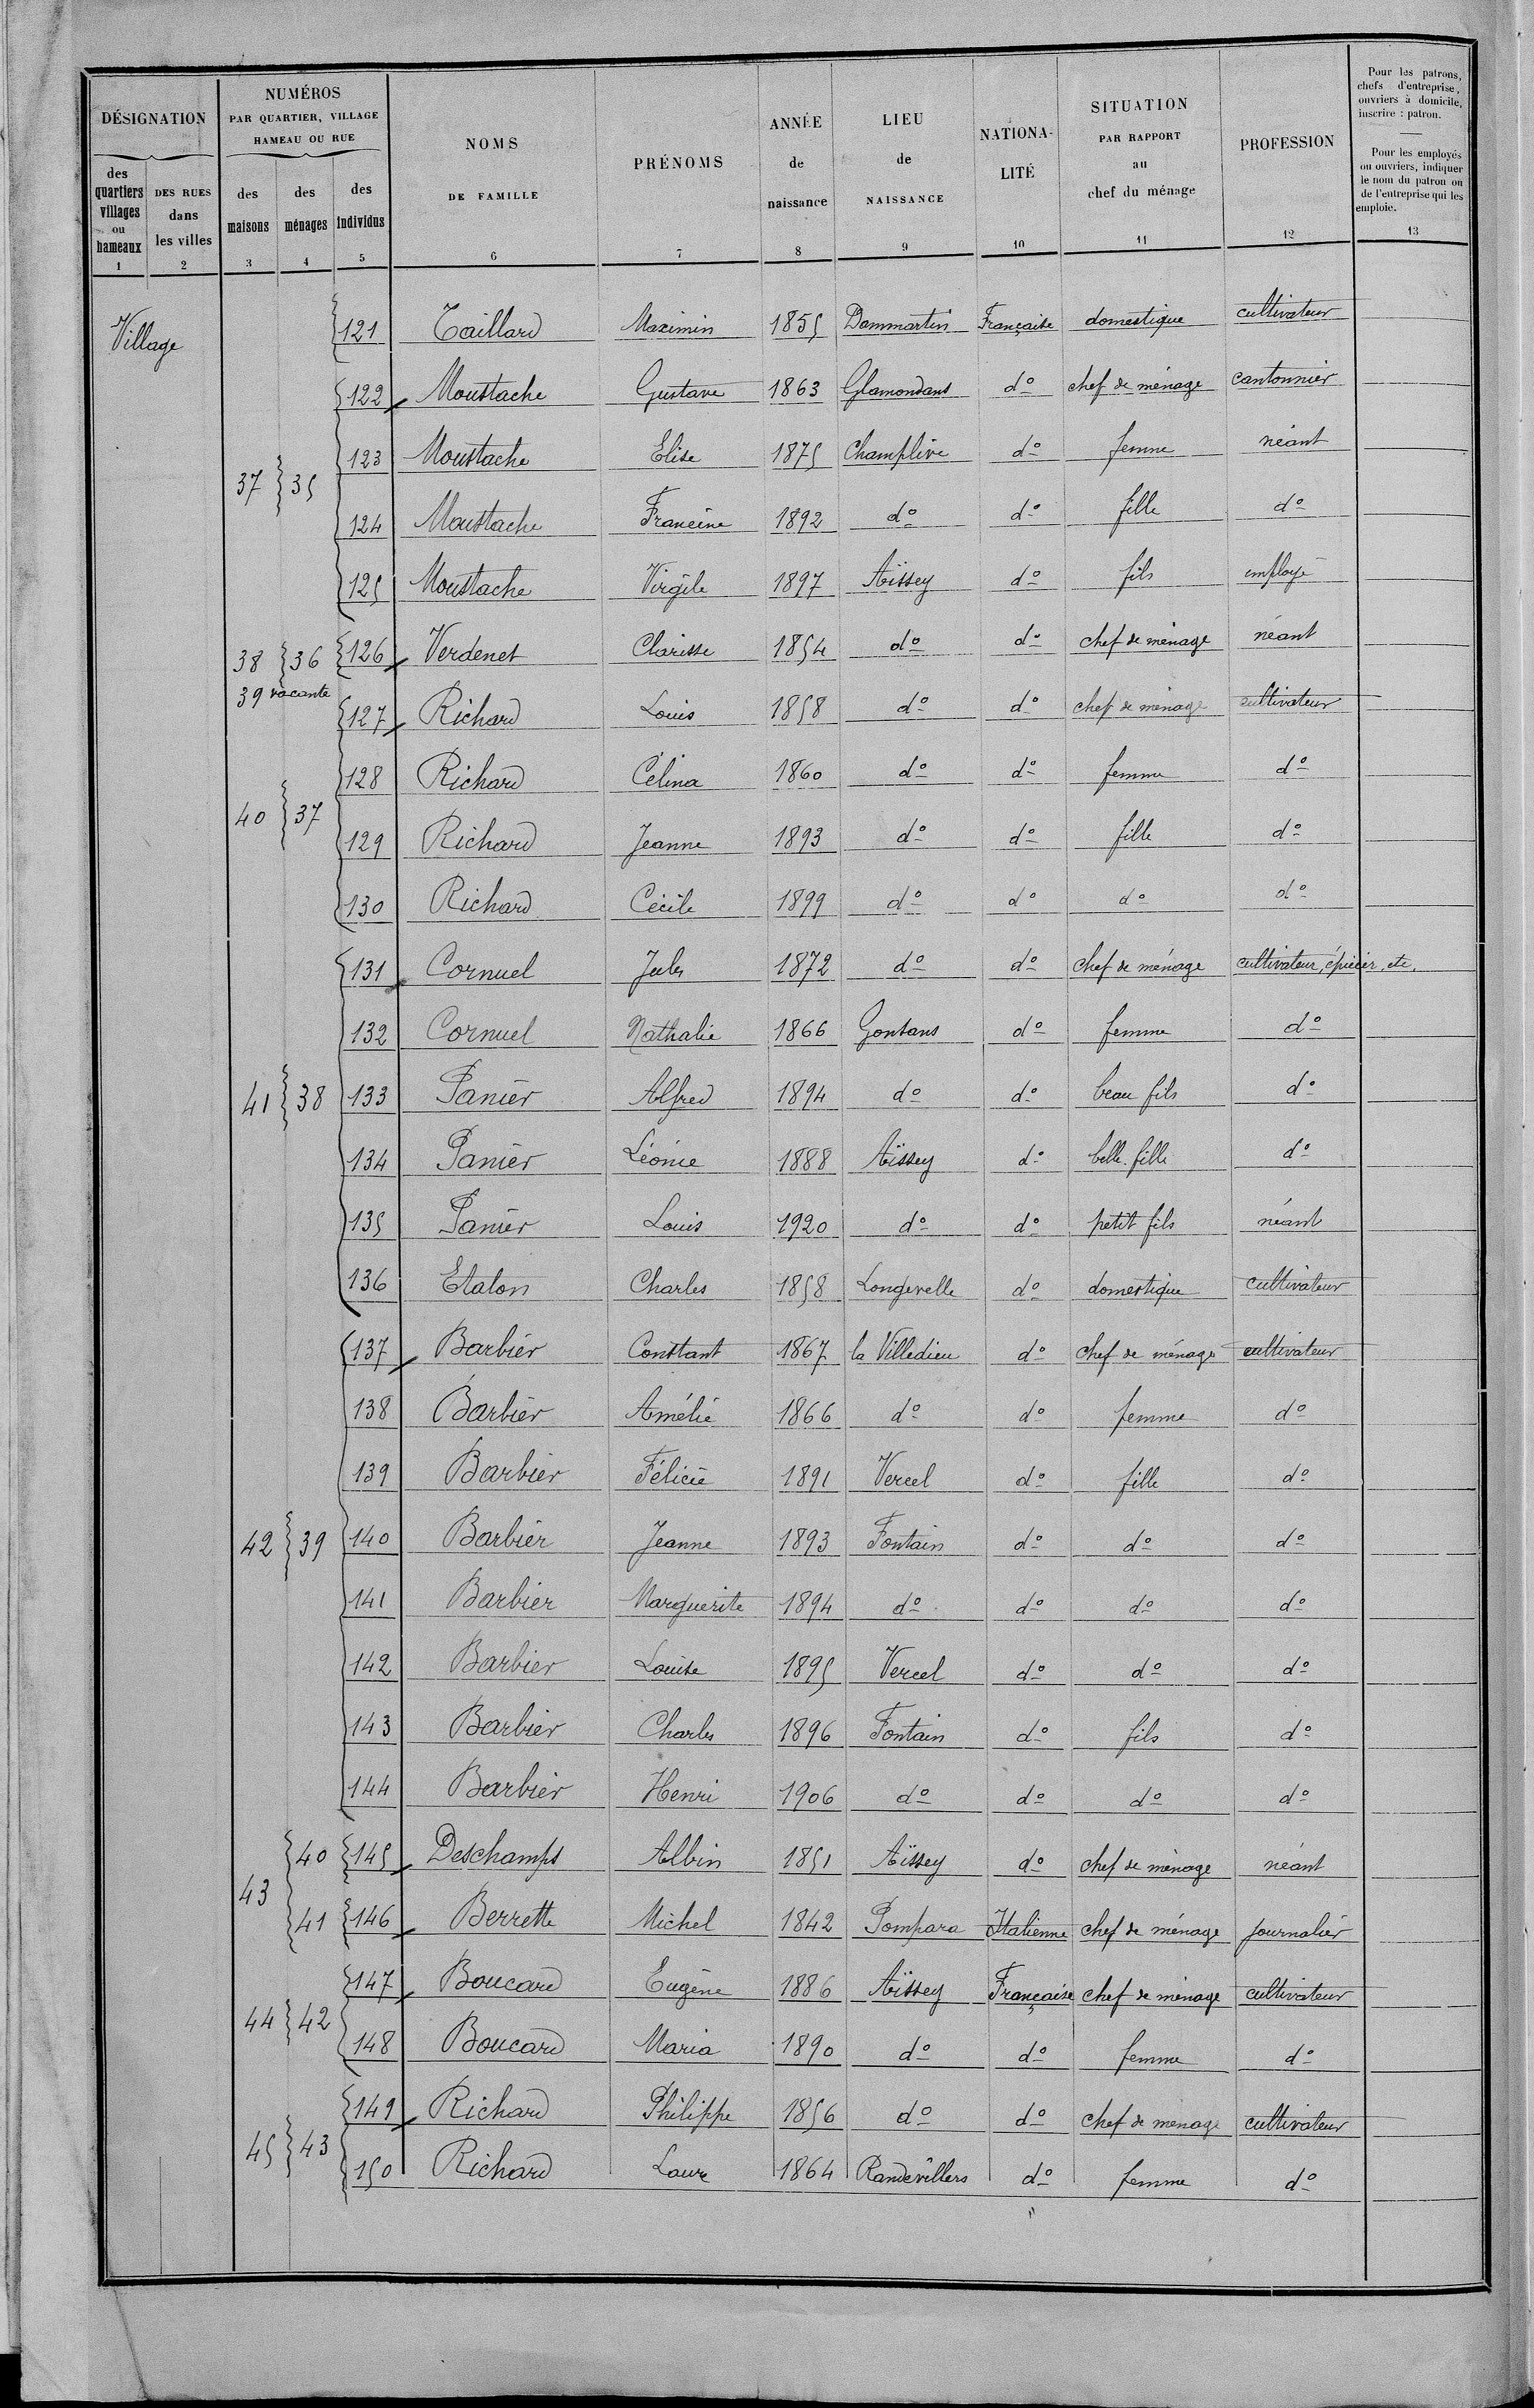 DÉSIGNATION
des quartiers villages ou hameaux 1
DES RUES dans les villes 2
NUMÉROS PAR QUARTIER, VILLAGE HAMEAU OU RUE
des maisons 3
des ménages 4
des individus 5
NOMS DE FAMILLE 6
PRÉNOMS 7
ANNÉE de naissance 8
LIEU de NAISSANCE 9
NATIONALITÉ 10
SITUATION PAR RAPPORT au chef du ménage 11
PROFESSION 12
Pour les patrons, chefs d'entreprise, ouvriers à domicile, inscrire : patron.
Pour les employés ou ouvriers, indiquer le nom du patron ou de l'entreprise qui les emploie. 13
Village
121 Taillard Maximin 1855 Dammartin Française domestique cultivateur
122 Moustache Gustave 1863 Glamondans do chef de ménage cantonnier
123 Moustache Elise 1875 Champlive do femme néant
37 35
124 Moustache Francine 1892 do do fille do
125 Moustache Virgile 1897 Aïssey do fils employé
38 36 126 Verdenet Clarisse 1854 do do chef de ménage néant
39 vacante
127 Richard Louis 1858 do do chef de ménage cultivateur
128 Richard Célina 1860 do do femme do
40 37
129 Richard Jeanne 1893 do do fille do
130 Richard Cécile 1899 do do do do
131 Cornuel Jules 1872 do do chef de ménage cultivateur, épicier, etc.
132 Cornuel Nathalie 1866 Gonsans do femme do
41 38 133 Panier Alfred 1894 do do beau fils do
134 Panier Léonie 1888 Aïssey do belle fille do
135 Panier Louis 1920 do do petit fils néant
136 Etalon Charles 1858 Longevelle do domestique cultivateur
137 Barbier Constant 1867 la Villedieu do chef de ménage cultivateur
138 Barbier Amélie 1866 do do femme do
139 Barbier Félicie 1891 Vercel do fille do
42 39 140 Barbier Jeanne 1893 Fontain do do do
141 Barbier Marguerite 1894 do do do do
142 Barbier Louise 1895 Vercel do do do
143 Barbier Charles 1896 Fontain do fils do
144 Barbier Henri 1906 do do do do
40 145 Deschamps Albin 1851 Aïssey do chef de ménage néant
43
41 146 Berrette Michel 1842 Pompara Italienne chef de ménage journalier
147 Boucard Eugène 1886 Aïssey Française chef de ménage cultivateur
44 42
148 Boucard Maria 1890 do do femme do
149 Richard Philippe 1856 do do chef de ménage cultivateur
45 43
150 Richard Laure 1864 Randevillers do femme do